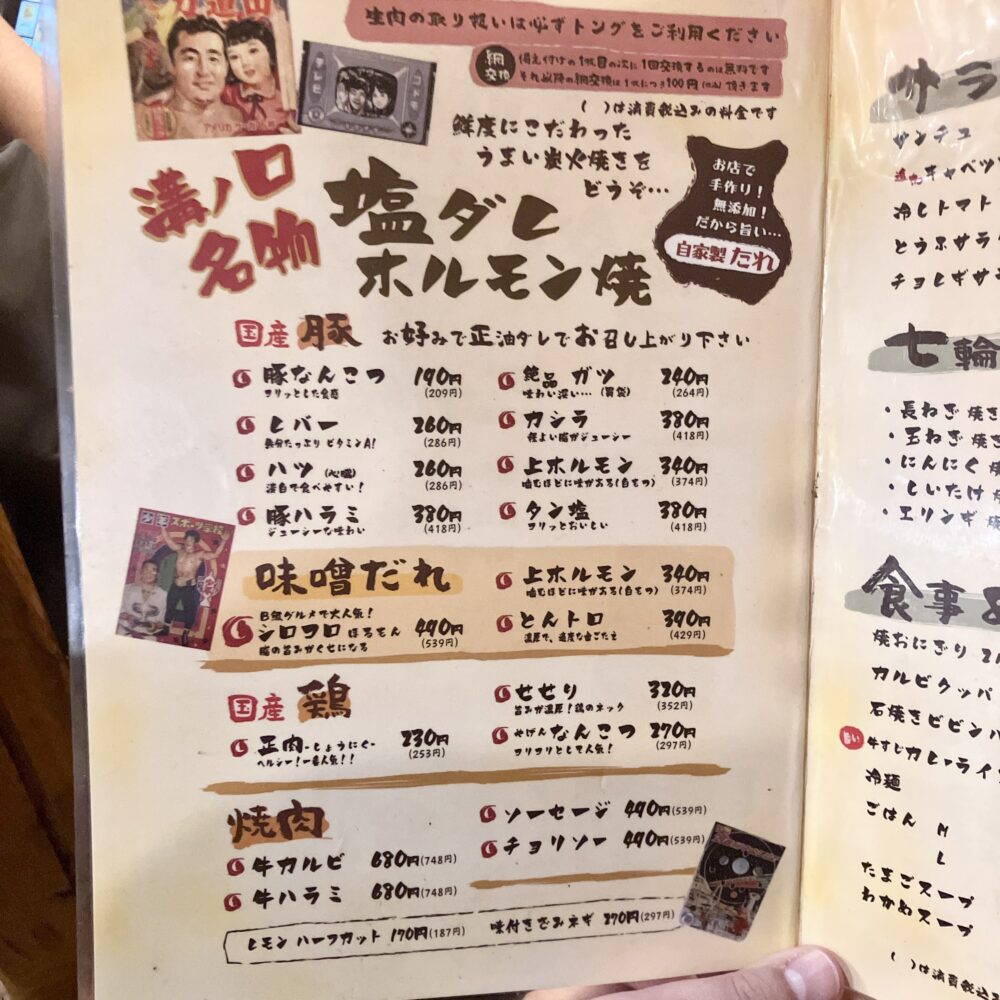 力道山
テレビ
コドモ
生肉の取り扱いは必ずトングをご利用ください
網交換
備え付けの1枚目の次に1回交換するのは無料です
それ以降の網交換は1枚につき100円(税込)頂きます
( )は消費税込みの料金です
鮮度にこだわった
うまい炭火焼きを
どうぞ…
溝ノ口
名物
塩ダレ
ホルモン焼
お店で
手作り!
無添加!
だから旨い…
自家製たれ
国産 豚 お好みで正油ダレでお召し上がり下さい
豚なんこつ 190円
コリッとした食感 (209円)
レバー 260円
養分たっぷり ビタミンA! (286円)
ハツ (心臓) 260円
淡白で食べやすい! (286円)
豚ハラミ 380円
ジューシーな味わい (418円)
絶品 ガツ 240円
味わい深い… (胃袋) (264円)
カシラ 380円
程よい脂がジューシー (418円)
上ホルモン 340円
噛むほどに味がある(白もつ) (374円)
タン塩 380円
コリッとおいしい (418円)
スポーツ学校
味噌だれ
B級グルメで大人気!
シロコロ ほるもん 490円
脂の旨みがくせになる (539円)
上ホルモン 340円
噛むほどに味がある(白もつ) (374円)
とんトロ 390円
濃厚で、適度な歯ごたえ (429円)
国産 鶏
正肉-しょうにく- 230円
ヘルシー!一番人気!! (253円)
せせり 320円
旨みが濃厚!鶏のネック (352円)
やげんなんこつ 270円
コリコリとして人気! (297円)
焼肉
牛カルビ 680円(748円)
牛ハラミ 680円(748円)
ソーセージ 490円(539円)
チョリソー 490円(539円)
レモン ハーフカット 170円(187円) 味付きざみネギ 270円(297円)
サラ
サンチュ
キャベツ
冷しトマト
とうふサラ
チョレギサ
七輪
・長ねぎ焼き
・玉ねぎ焼き
・にんにく焼
・しいたけ焼
・エリンギ焼
食事&
焼おにぎり
カルビクッパ
石焼きビビンバ
旨い
牛すじカレーライ
冷麺
ごはん M
L
たまごスープ
わかめスープ
( )は消費税込み